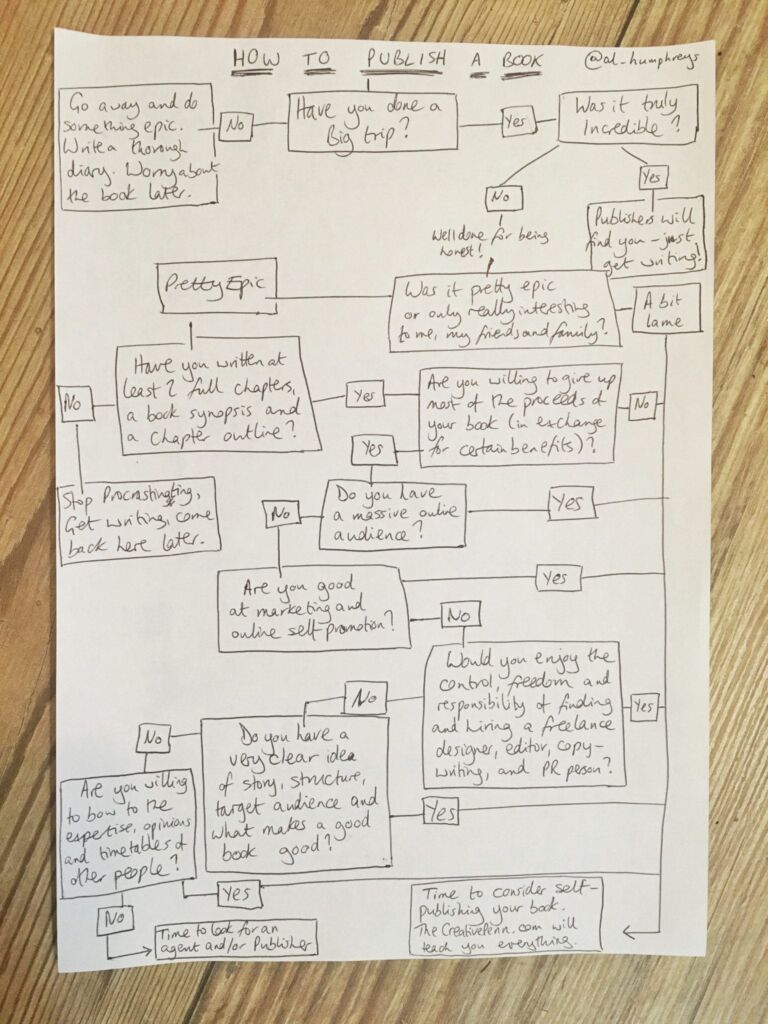 HOW TO PUBLISH A BOOK
@al_humphreys
Go away and do
something epic.
Write a thorough
diary. Worry about
the book later.
No
Have you done a
Big trip?
Yes
Was it truly
Incredible?
No
Yes
Well done for being
honest!
Publishers will
find you - just
get writing!
Pretty Epic
Was it pretty epic
or only really interesting
to me, my friends and family?
A bit
lame
Have you written at
least 2 full chapters,
a book synopsis and
a chapter outline?
No
Yes
Are you willing to give up
most of the proceeds of
your book (in exchange
for certain benefits)?
No
Yes
Stop Procrastinating,
Get writing, come
back here later.
No
Do you have
a massive online
audience?
Yes
Are you good
at marketing and
online self promotion?
Yes
No
Would you enjoy the
control, freedom and
responsibility of finding
and hiring a freelance
designer, editor, copy-
writing, and PR person?
Yes
No
Do you have a
very clear idea
of story, structure,
target audience and
what makes a good
book good?
Yes
No
Are you willing
to bow to the
expertise, opinions
and timetables of
other people?
Yes
No
Time to look for an
agent and/or Publisher
Time to consider self-
publishing your book.
The CreativePenn.com will
teach you everything.